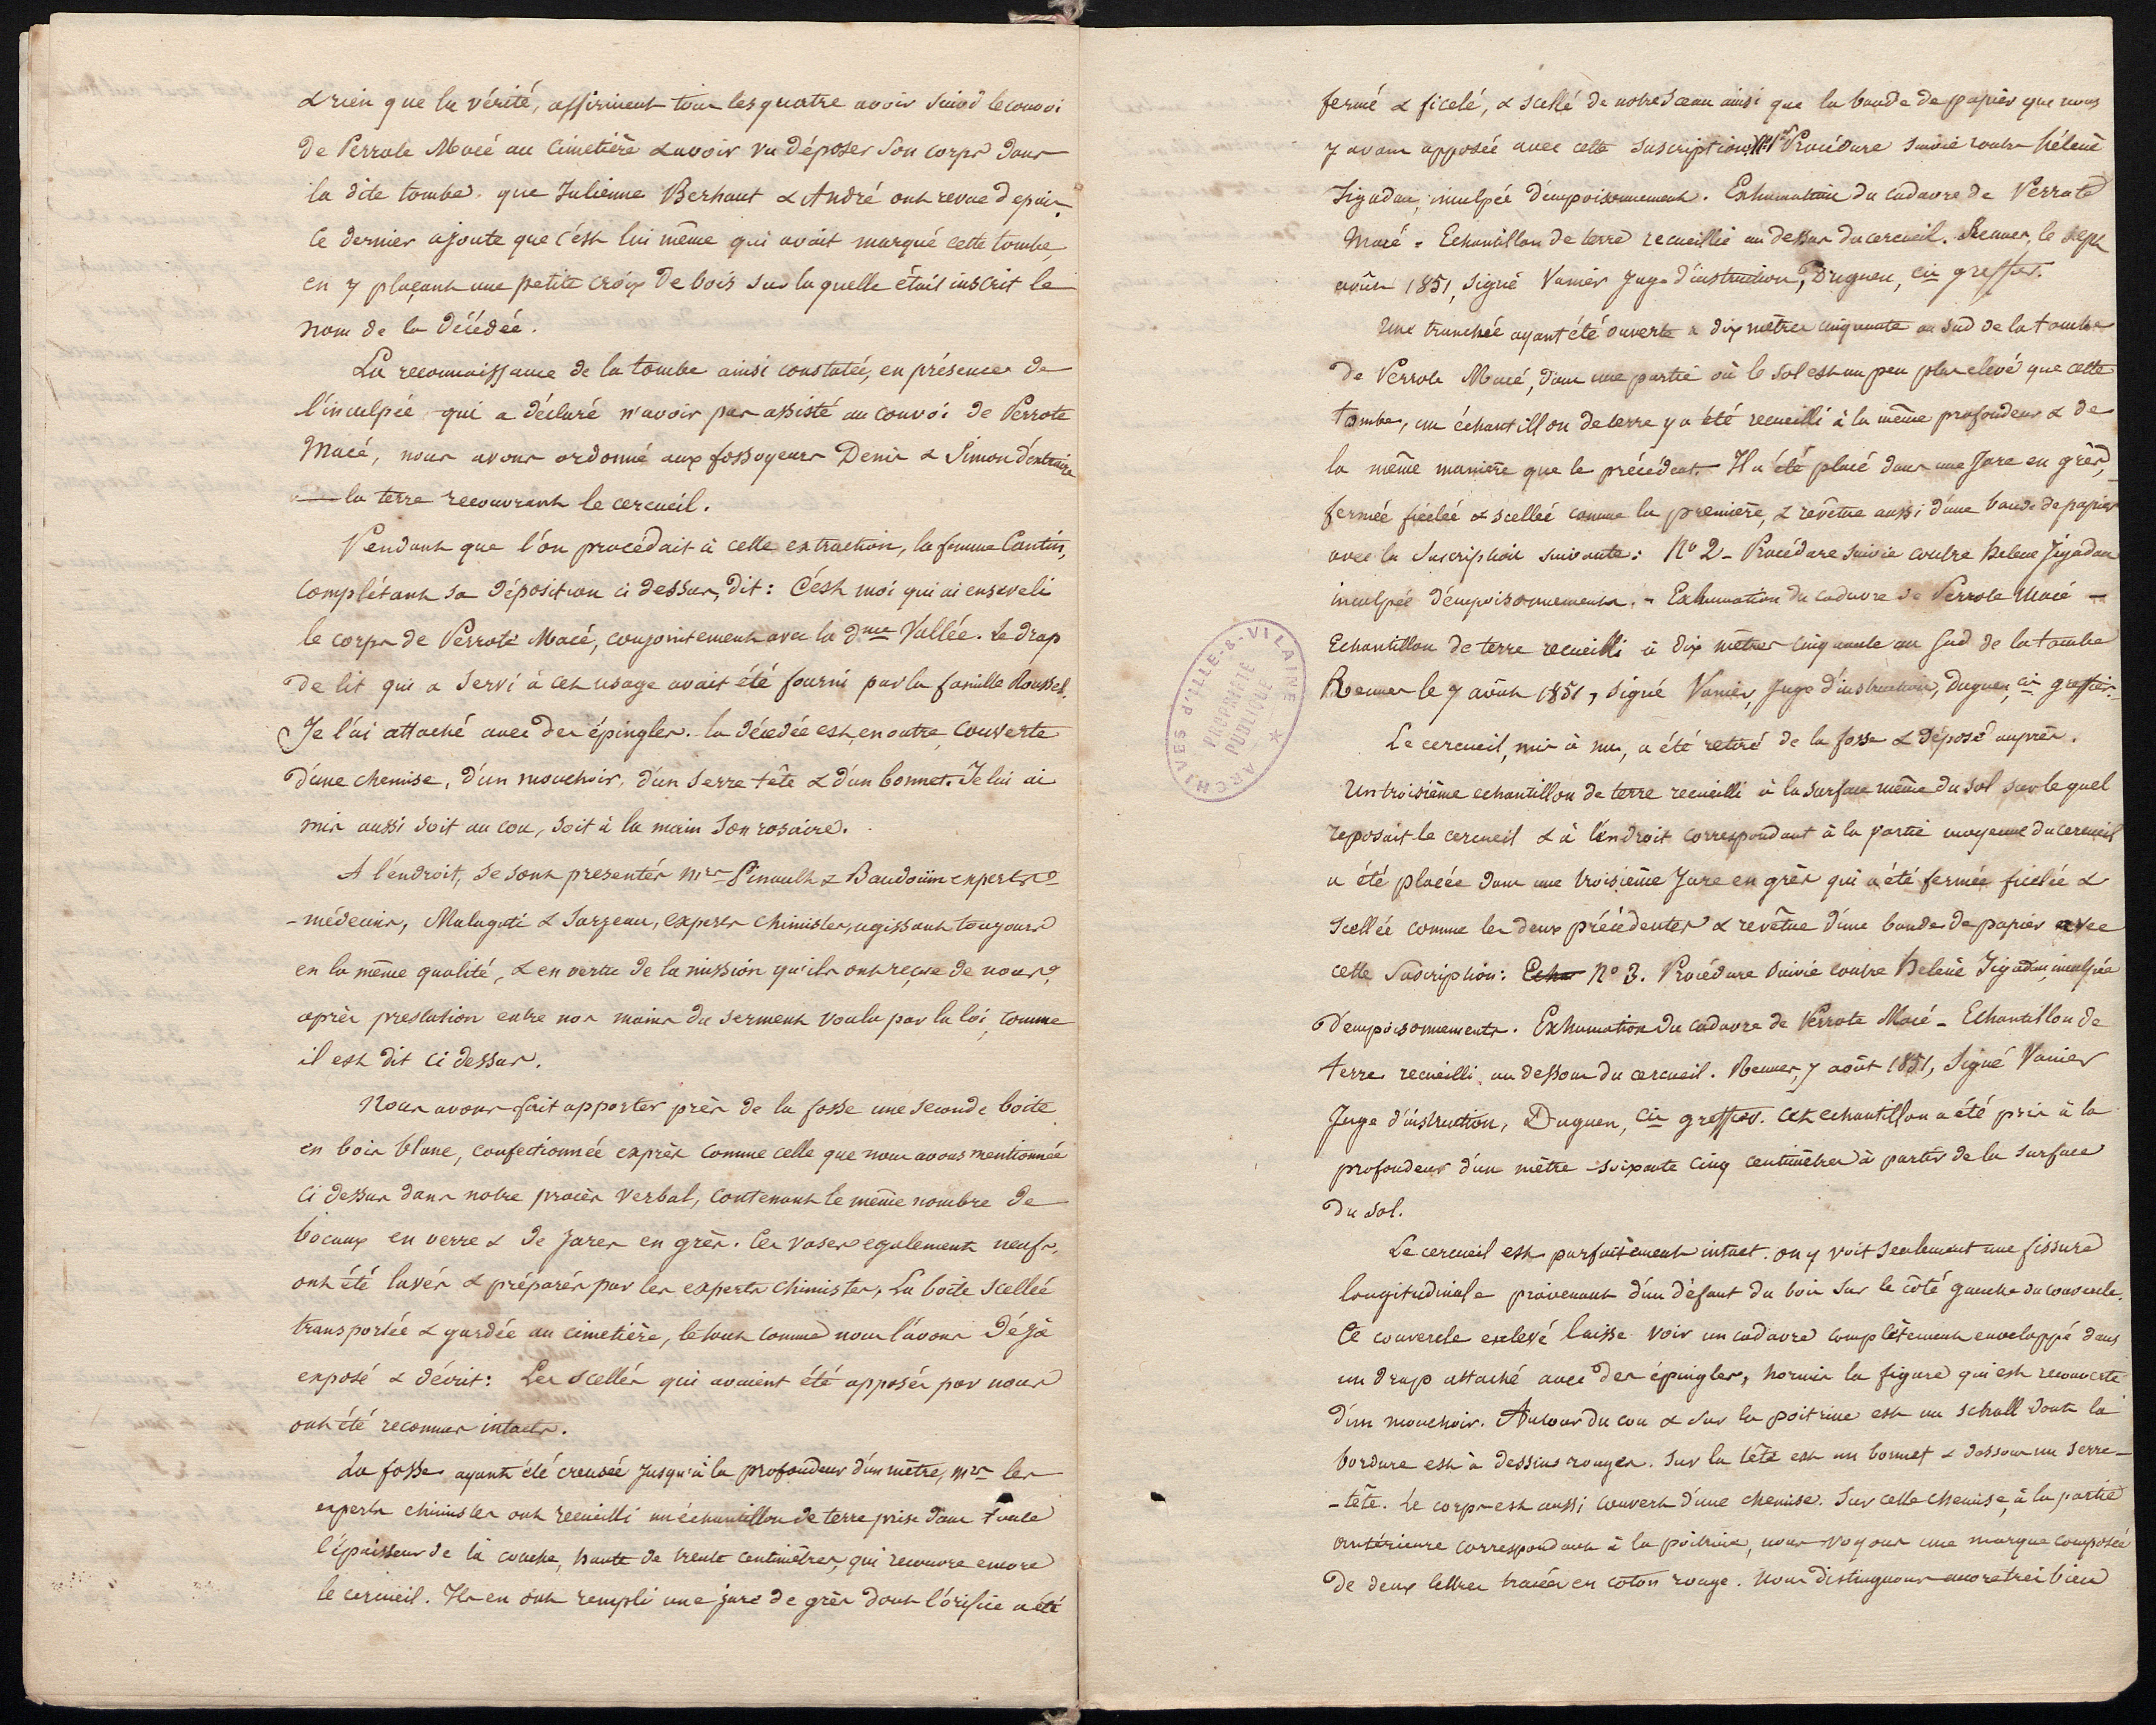 & rien que la vérité, affirment tous les quatre avoir suivi le convoi
de Perrote Macé au Cimetière & avoir vu déposer son corps dans
la dite tombe, que Julienne Berhaut & André ont revue depuis.
Ce dernier ajoute que c'est lui même qui avait marqué cette tombe,
en y plaçant une petite croix de bois sur laquelle était inscrit le
nom de la décédée.
La reconnaissance de la tombe ainsi constatée, en présence de
l'inculpée qui a déclaré n'avoir pas assisté au convoi de Perrote
Macé, nous avons ordonné aux fossoyeurs Denis & Simon d'extraire
la terre recouvrant le cercueil.
Pendant que l'on procédait à cette extraction, la femme Cantin,
complétant sa déposition ci dessus, dit: C'est moi qui ai enseveli
le corps de Perrote Macé, conjointement avec la dme Vallée. Le drap
de lit qui a servi à cet usage avait été fourni par la famille Roussel.
Je l'ai attaché avec des épingles. la décédée est, en outre, couverte
d'une chemise, d'un mouchoir, d'un serre tête & d'un bonnet. Je lui ai
mis aussi soit au cou, soit à la main son rosaire.
A l'endroit, se sont présentés Mrs Pinault & Baudoüin experts
-médecins, Malaguti & Sarzeau, experts chimistes, agissant toujours
en la même qualité, & en vertu de la mission qu'ils ont reçue de nous,
après prestation entre nos mains du serment voulu par la loi, comme
il est dit ci dessus.
Nous avons fait apporter près de la fosse une seconde boite
en bois blanc, confectionnée exprès comme celle que nous avons mentionnée
ci dessus dans notre procès verbal, contenant le même nombre de
bocaux en verre & de jares en grès. Ces vases également neufs,
ont été lavés & préparés par les experts chimistes. La boîte scellée
transportée & gardée au cimetière, le tout comme nous l'avons déjà
exposé & décrit: Les scellés qui avaient été apposés par nous
ont été reconnus intacts.
La fosse ayant été creusée jusqu'à la profondeur d'un mètre, Mrs les
experts chimistes ont recueilli un échantillon de terre prise dans toute
l'épaisseur de la couche, haute de trente centimètres, qui recouvre encore
le cercueil. Ils en ont rempli une jare de grès dont l'orifice a été
fermé & ficelé, & scellé de notre sceau ainsi que la bande de papier que nous
y avons apposée avec cette suscription: N° 1er Procédure suivie contre hélène
Jégadau, inculpée d'empoisonnement. Exhumation du cadavre de Perrote
Macé - Echantillon de terre recueillie au dessus du cercueil. Rennes, le sept
août 1851, signé Vanier Juge d'instruction, Duguen, cis greffier.
Une tranchée ayant été ouverte à dix mètres cinquante au sud de la tombe
de Perrote Macé, dans une partie où le sol est un peu plus élevé que cette
tombe, un échantillon de terre y a été recueilli à la même profondeur & de
la même manière que le précédent. Il a été placé dans une jare en grès,
fermée ficelée & scellée comme la première, & revêtue aussi d'une bande de papier
avec la suscription suivante: N° 2 - Procédure suivie contre helene Jégadau
inculpée d'empoisonnements. - Exhumation du cadavre de Perrote Macé -
Echantillon de terre recueilli à dix mètres cinquante au sud de la tombe
Rennes le 7 août 1851, signé Vanier, Juge d'instruction, Duguen, cis greffier.
Le cercueil, mis à nu, a été retiré de la fosse & déposé auprès.
Un troisième echantillon de terre recueilli à la surface même du sol sur lequel
reposait le cercueil & à l'endroit correspondant à la partie moyenne du cercueil
a été placée dans une troisième jare en grès qui a été fermée ficelée &
scellée comme les deux précédentes & revêtue d'une bande de papier avec
cette suscription: Echa N° 3. Procédure suivie contre helène Jégadau, inculpée
d'empoisonnements. Exhumation du cadavre de Perrote Macé - Echantillon de
terre recueilli au dessous du cercueil. Rennes, 7 août 1851, signé Vanier
Juge d'instruction, Duguen, cis greffier. Cet echantillon a été pris à la
profondeur d'un mètre soixante cinq centimètres à partir de la surface
du sol.
Le cercueil est parfaitement intact. on y voit seulement une fissure
longitudinale provenant d'un défaut du bois sur le côté gauche du couvercle.
Ce couvercle enlevé laisse voir un cadavre complètement enveloppé dans
un drap attaché avec des épingles, hormis la figure qui est recouverte
d'un mouchoir. Autour du cou & sur la poitrine est un schall dont la
bordure est à dessins rouges. Sur la tête est un bonnet & dessous un serre-
-tête. Le corps est aussi couvert d'une chemise. Sur cette chemise, à la partie
antérieure correspondant à la poitrine, nous voyons une marque composée
de deux lettres tracées en coton rouge. Nous distinguons encore très bien
ARCHIVES d'ILLE-&-VILAINE
PROPRIÉTÉ
PUBLIQUE